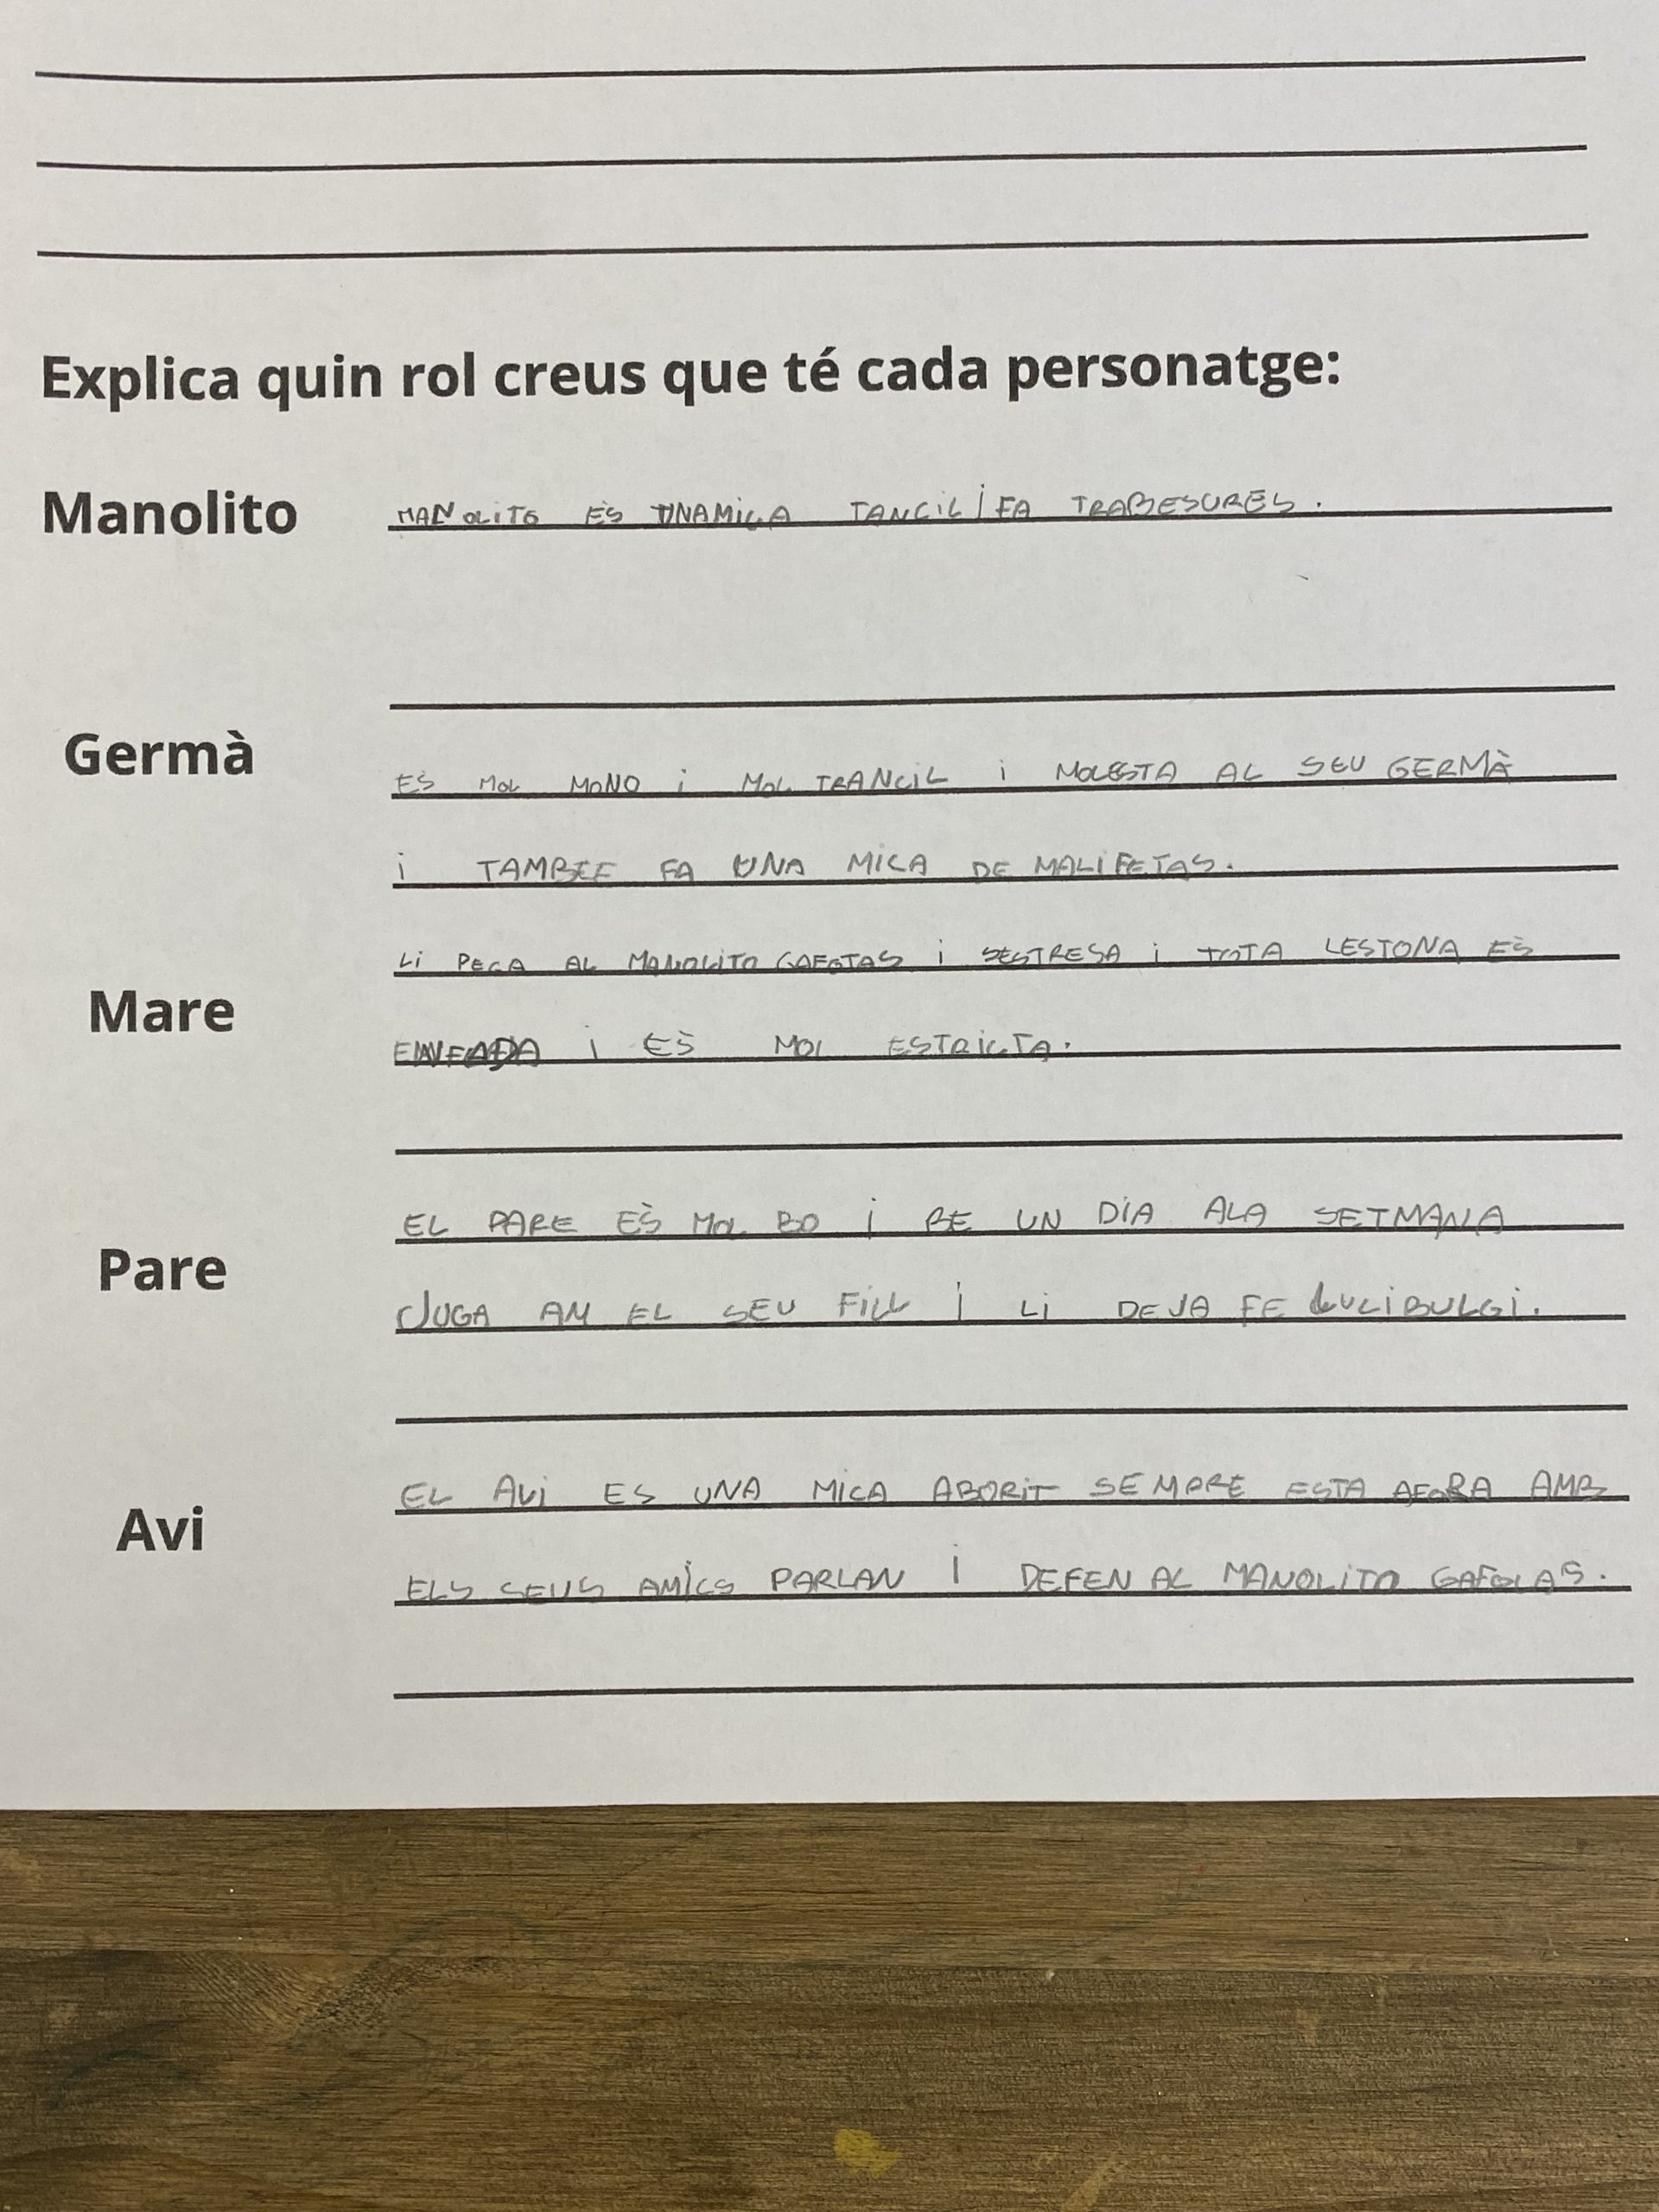 Explica quin rol creus que té cada personatge:
Manolito MANOLITO ÈS UNAMICA TANCIL i FA TRABESURES.
Germà
ES MOL MONO i MOL TRANCIL i MOLESTA AL SEU GERMÀ
i TAMBEE FA UNA MICA DE MALIFETAS.
Li PEGA AL MANOLITO GAFOTAS i SESTRESA i TOTA LESTONA ÈS
Mare
i ÈS MOL ESTRICTA.
EL PARE ÈS MOL BO i BE UN DIA ALA SETMANA
Pare
JUGA AM EL SEU FILL i Li DEJA FE
EL AVI ES UNA MICA ABORIT SEMPRE ESTA AFORA AMB
Avi
ELS SEUS AMICS PARLAN i DEFEN AL MANOLITO GAFOLAS.